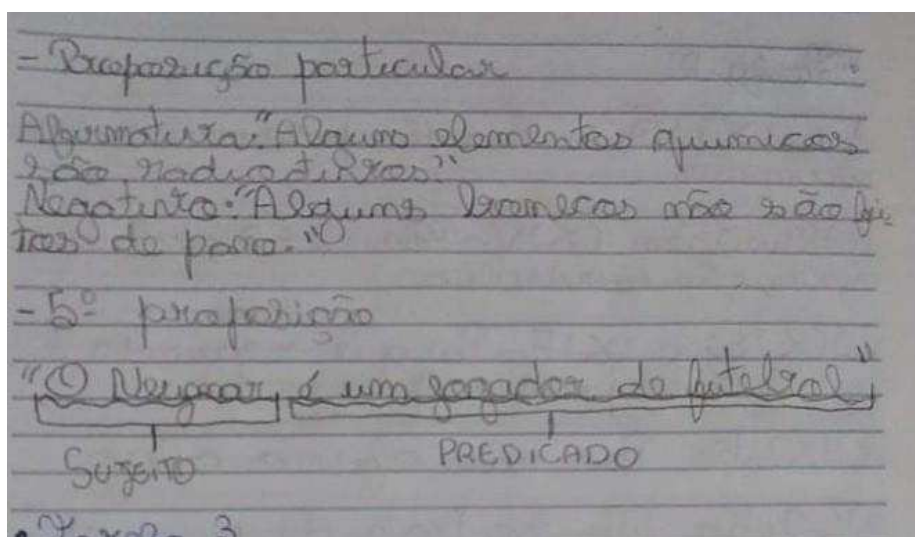 - Proposição particular
Afirmativa: "Alguns elementos químicos
são radioativos."
Negativa: "Alguns bonecos não são fei-
tos de pano."
- 5º proposição
"O Neymar é um jogador de futebol"
SUJEITO PREDICADO
3